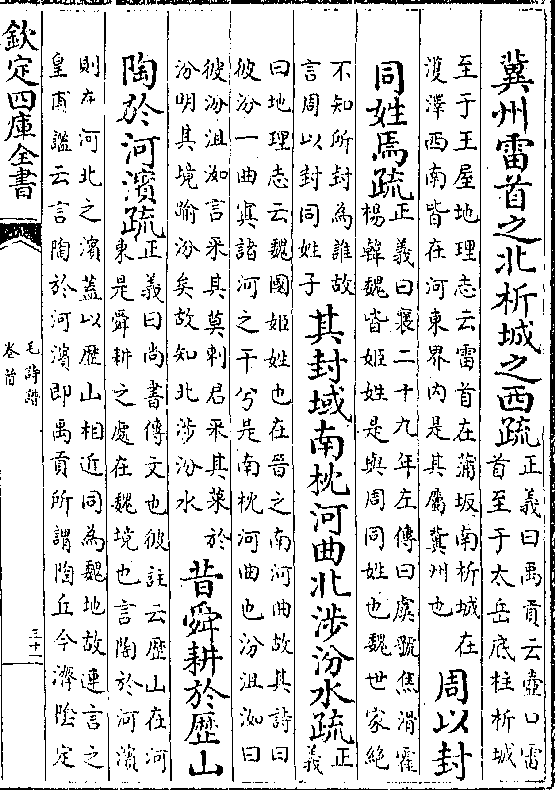 冀州雷首之北析城之西疏正義曰禹貢云壺口雷
首至于太岳底柱析城
至于王屋地理志云雷首在蒲坂南析城在
濩澤西南皆在河東界内是其屬冀州也周以封
同姓焉疏正義曰襄二十九年左傳曰虞虢焦滑霍
楊韓魏皆姬姓是與周同姓也魏世家絶
不知所封為誰故
言周以封同姓子其封域南枕河曲北涉汾水疏正
義
曰地理志云魏國姬姓也在晉之南河曲故其詩曰
彼汾一曲寘諸河之干兮是南枕河曲也汾沮洳曰
彼汾沮洳言采其莫刺君采其菜於
汾明其境踰汾矣故知北涉汾水昔舜耕於歷山
陶於河濱疏正義曰尚書傳文也彼註云歷山在河
東是舜耕之處在魏境也言陶於河濱
則在河北之濱蓋以歷山相近同為魏地故連言之
皇甫謐云言陶於河濱即禹貢所謂陶丘今濟陰定
欽定四庫全書
毛詩譜
卷首
三十一